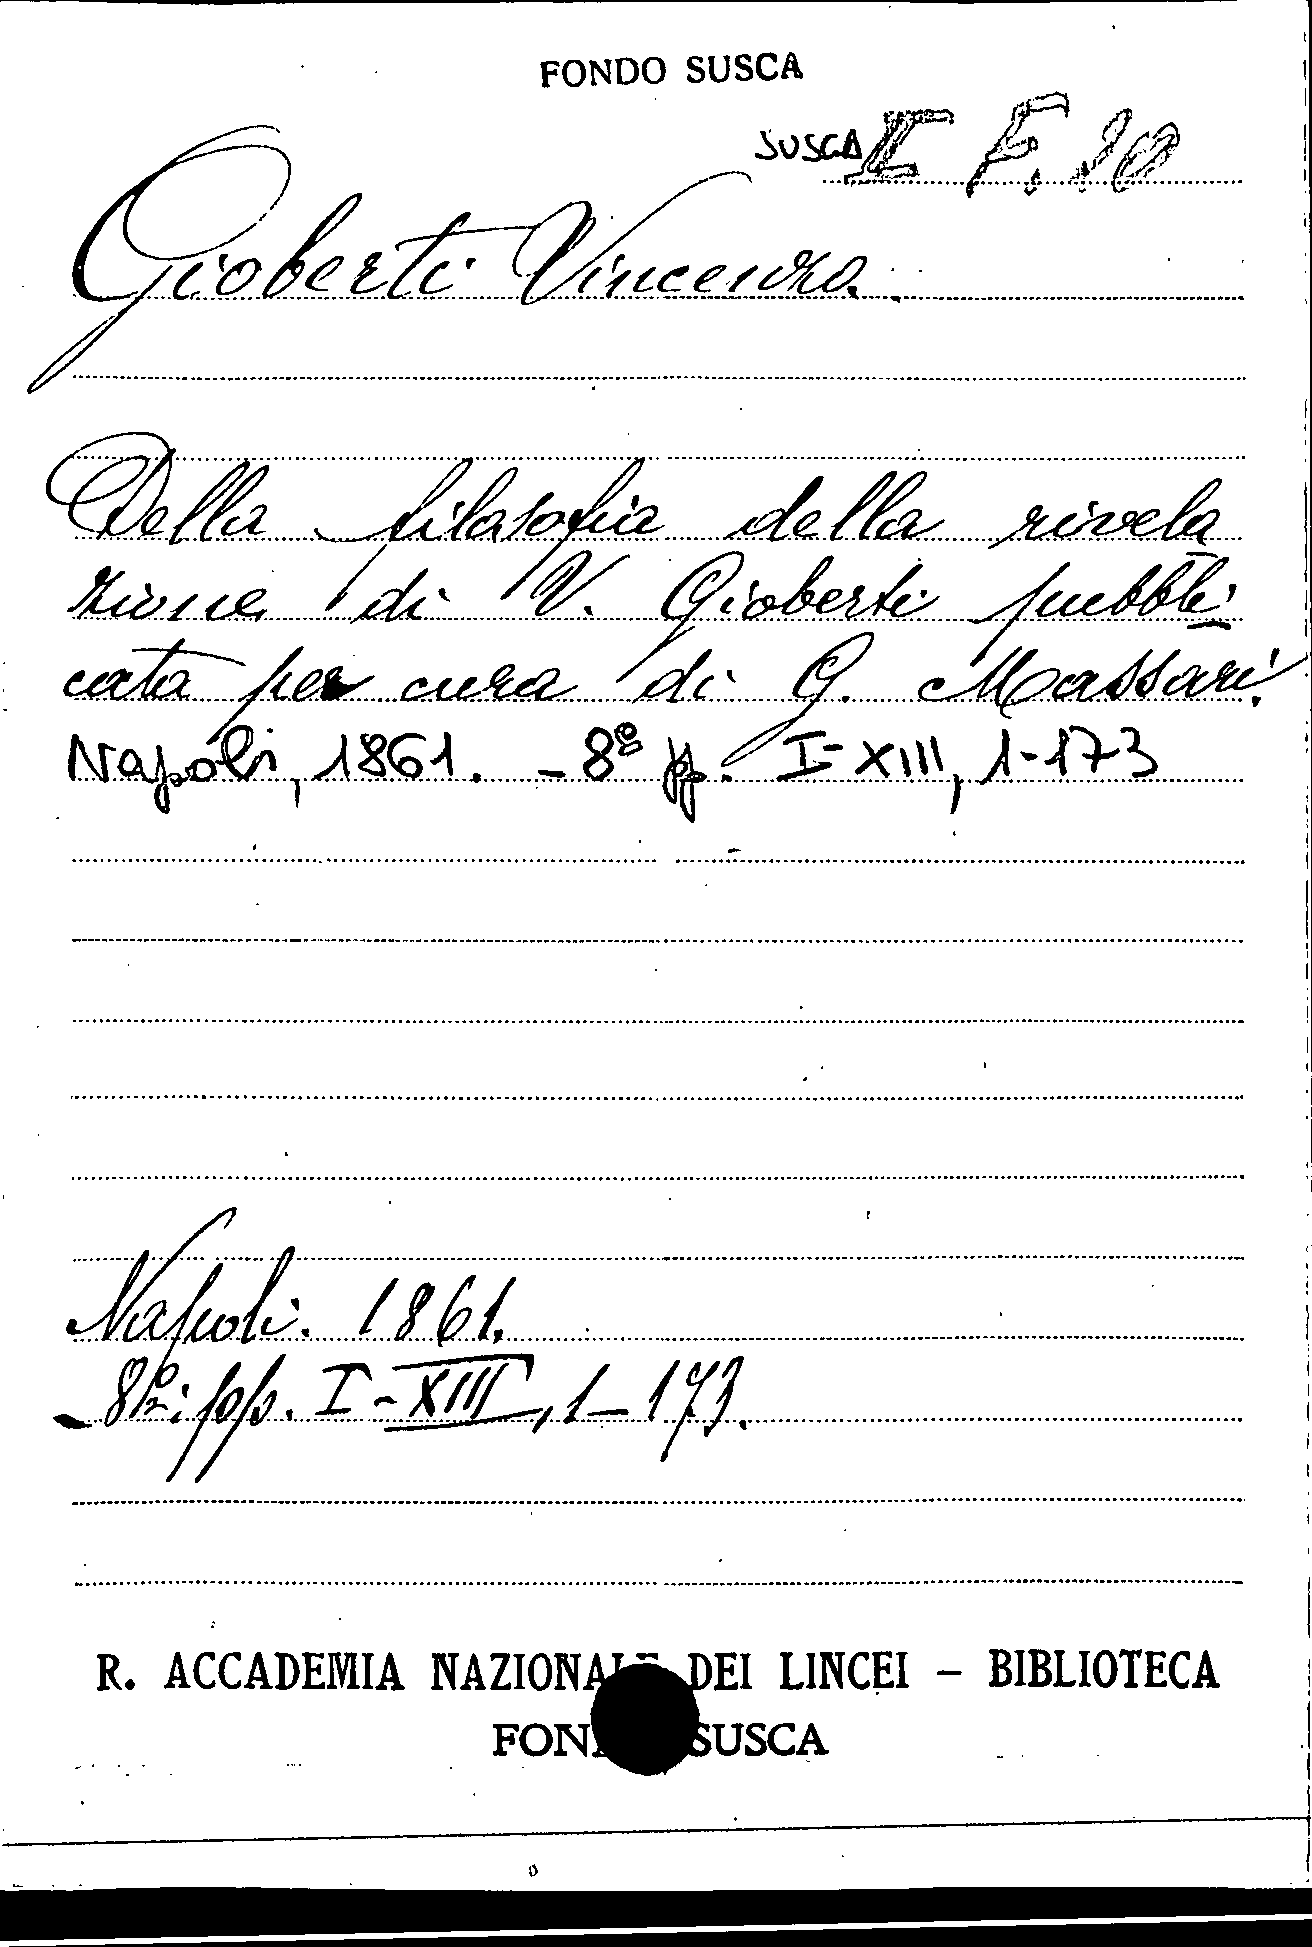 FONDO SUSCA
SUSCA I F. 20
Gioberti Vincenzo.
Della filosofia della rivela
zione di V. Gioberti pubbli
cata per cura di G. Massari.
Napoli, 1861. - 8º pp. I-XIII, 1-173
Napoli. 1861.
- 8º: pp. I-XIII, 1-173.
R. ACCADEMIA NAZIONALE DEI LINCEI – BIBLIOTECA
FONDO SUSCA